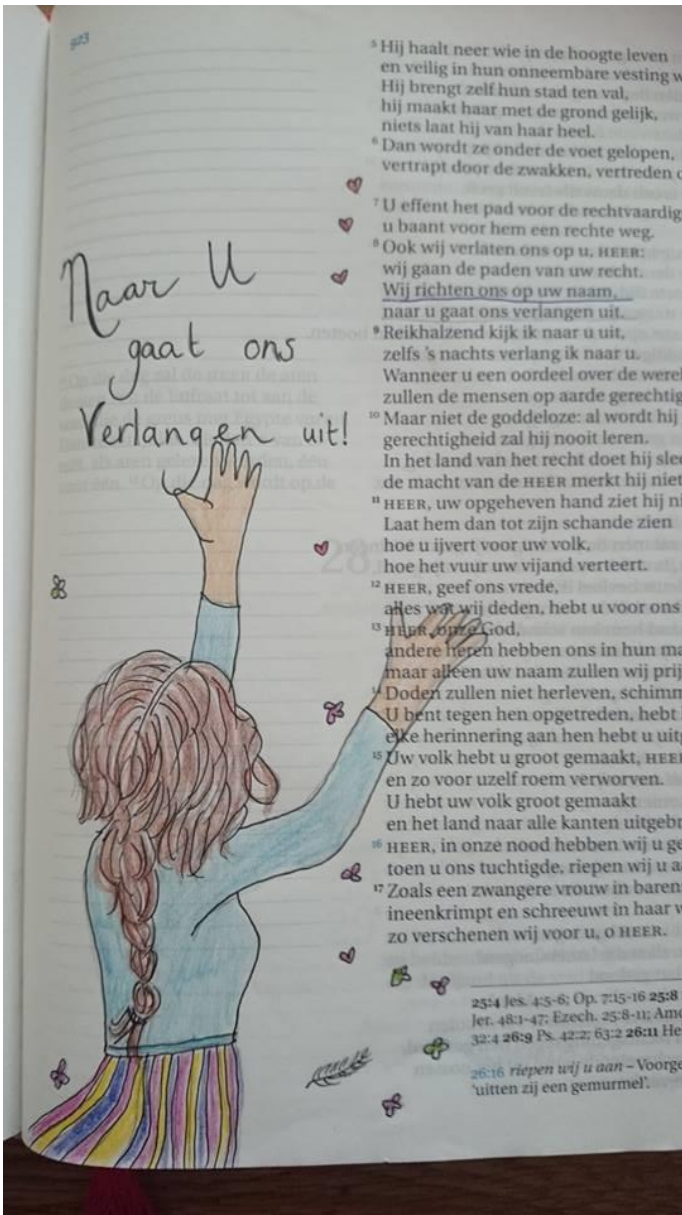 923
Naar U
gaat ons
Verlangen uit!
5 Hij haalt neer wie in de hoogte leven
en veilig in hun onneembare vesting
Hij brengt zelf hun stad ten val,
hij maakt haar met de grond gelijk,
niets laat hij van haar heel.
6 Dan wordt ze onder de voet gelopen,
vertrapt door de zwakken, vertreden
7 U effent het pad voor de rechtvaardig
u baant voor hem een rechte weg.
8 Ook wij verlaten ons op u, HEER:
wij gaan de paden van uw recht.
Wij richten ons op uw naam,
naar u gaat ons verlangen uit.
9 Reikhalzend kijk ik naar u uit,
zelfs 's nachts verlang ik naar u.
Wanneer u een oordeel over de werel
zullen de mensen op aarde gerechtig
10 Maar niet de goddeloze: al wordt hij
gerechtigheid zal hij nooit leren.
In het land van het recht doet hij slec
de macht van de HEER merkt hij niet
11 HEER, uw opgeheven hand ziet hij ni
Laat hem dan tot zijn schande zien
hoe u ijvert voor uw volk,
hoe het vuur uw vijand verteert.
12 HEER, geef ons vrede,
alles wat wij deden, hebt u voor ons
13 HEER, onze God,
andere heren hebben ons in hun ma
maar alleen uw naam zullen wij prij
14 Doden zullen niet herleven, schimm
U bent tegen hen opgetreden, hebt
elke herinnering aan hen hebt u uitg
15 Uw volk hebt u groot gemaakt, HEER
en zo voor uzelf roem verworven.
U hebt uw volk groot gemaakt
en het land naar alle kanten uitgebr
16 HEER, in onze nood hebben wij u ge
toen u ons tuchtigde, riepen wij u aa
17 Zoals een zwangere vrouw in baren
ineenkrimpt en schreeuwt in haar w
zo verschenen wij voor u, o HEER.
25:4 Jes. 4:5-6; Op. 7:15-16 25:8
Jer. 48:1-47; Ezech. 25:8-11; Amo
32:4 26:9 Ps. 42:2; 63:2 26:11 He
26:16 riepen wij u aan – Voorge
'uitten zij een gemurmel'.